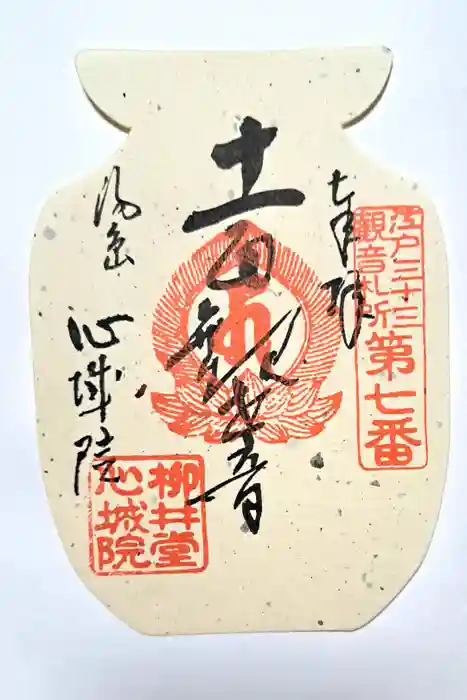 江戸三十三
観音札所
第七番
奉拝
十一面観世音
湯島
心城院
柳井堂
心城院